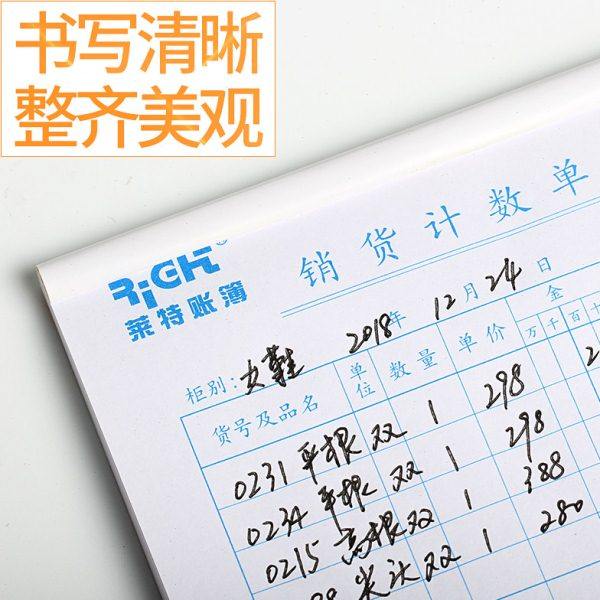 书写清晰
整齐美观
RiGHT®
莱特账簿
销货计数单
柜别:女鞋 2018年12月24日
货号及品名 单位 数量 单价 金
万 千 百 十
0231 平根 双 1 298
0234 平根 双 1 298
0215 高根 双 1 388
尖头 双 1 280